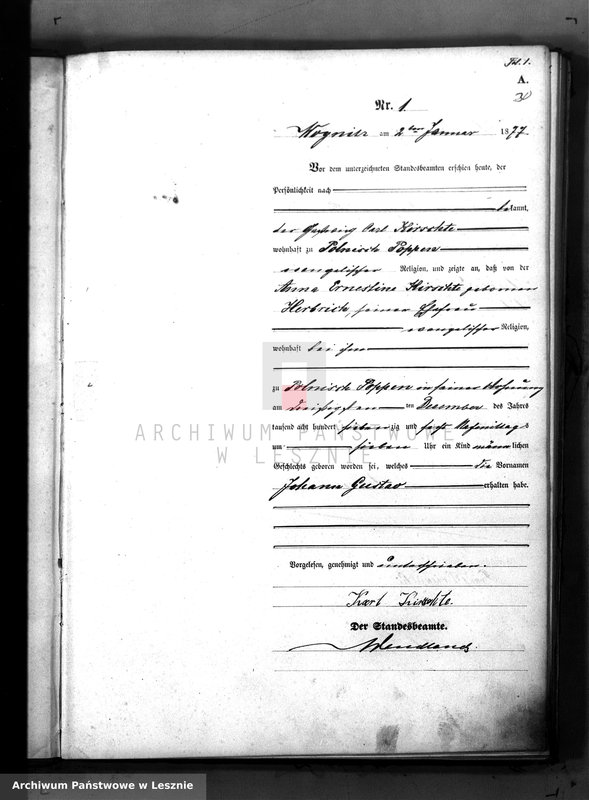 Fol. 1.
A.
Nr. 1.
am 2ten Januar 1877
Vor dem unterzeichneten Standesbeamten erschien heute, der
Persönlichkeit nach
bekannt,
der Carl Kirschke
wohnhaft zu Polnisch Poppen
evangelischer Religion, und zeigte an, daß von der
Anna Ernestine Kirschke geborenen
Herbrich, seiner Ehefrau
evangelischer Religion,
wohnhaft bei ihm
zu Polnisch Poppen in seiner Wohnung
am dreißigsten ten Dezember des Jahres
tausend acht hundert siebenzig und sechs Nachmittags
um sieben Uhr ein Kind männlichen
Geschlechts geboren worden sei, welches die Vornamen
Johann Gustav erhalten habe.
Vorgelesen, genehmigt und unterschrieben.
Karl Kirschke.
Der Standesbeamte.
Wendland.
ARCHIWUM PAŃSTWOWE
W LESZNIE
Archiwum Państwowe w Lesznie